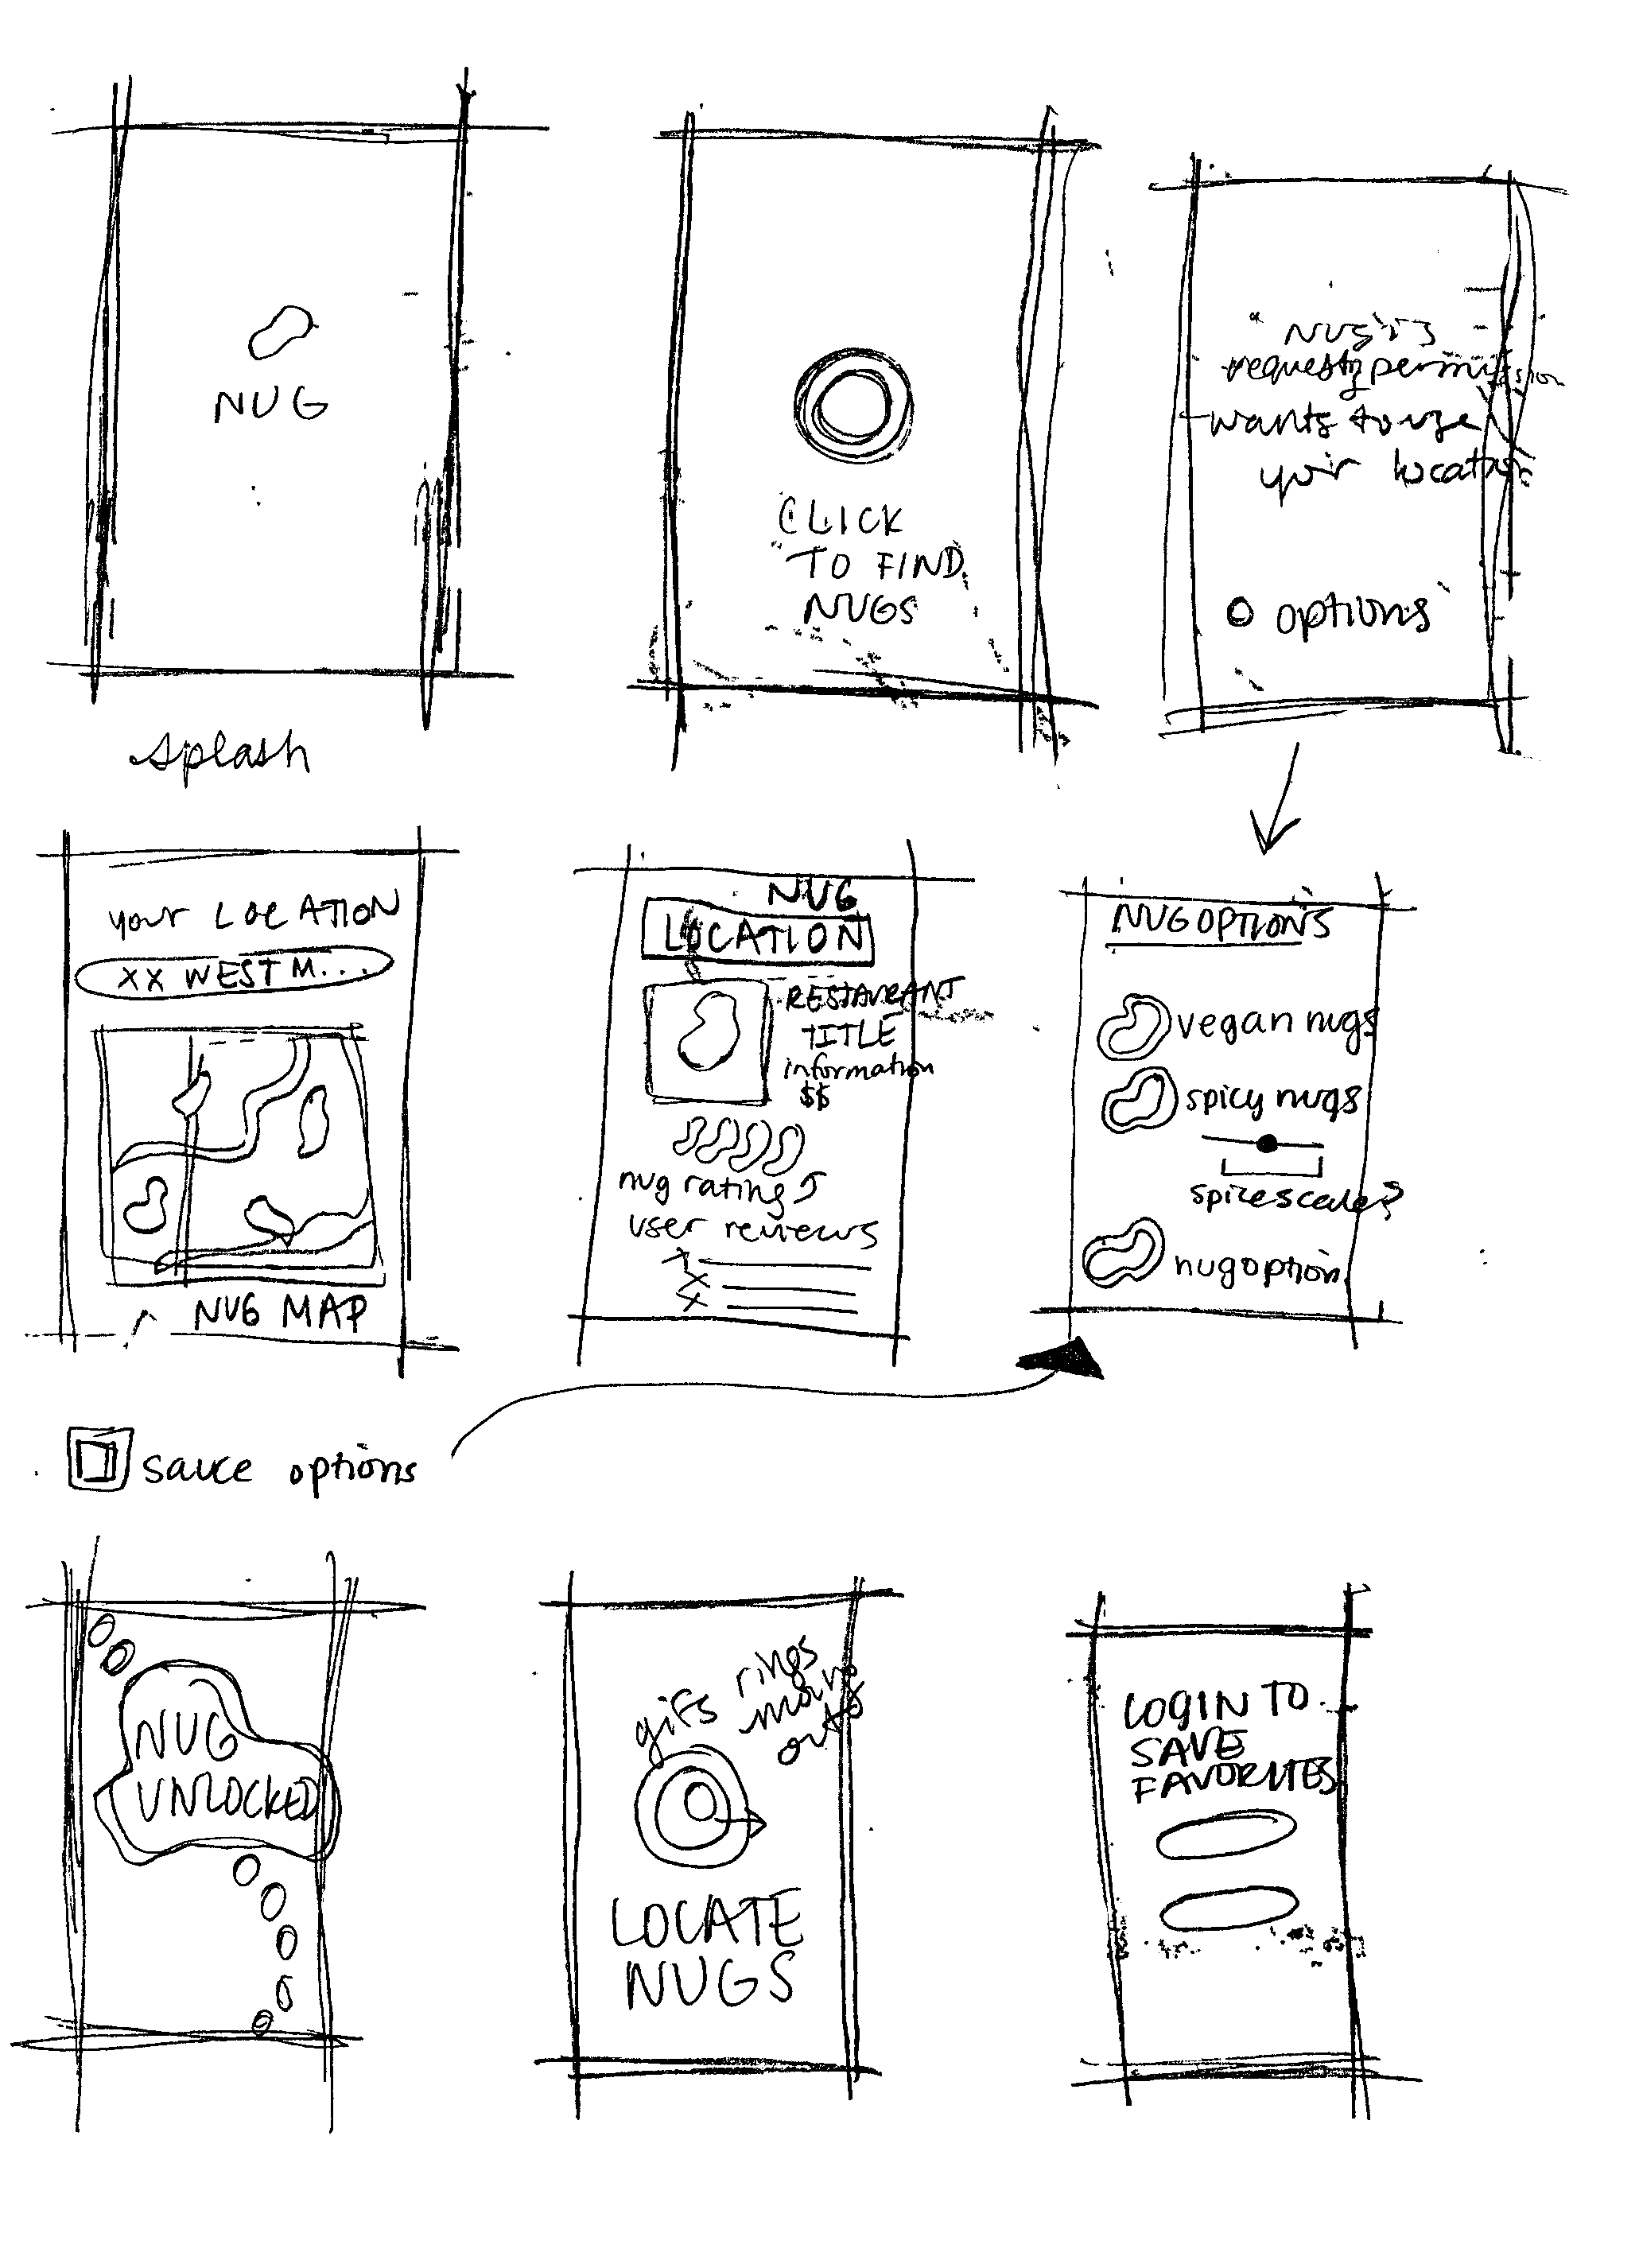 NUG
splash
CLICK
TO FIND
NUGS
"NUG" is
requestg permission
wants to use
your location
options
your LOCATION
XX WEST M...
NUG MAP
NUG
LOCATION
RESTAURANT
TITLE
information
$$
nug rating
user reviews
NUG OPTIONS
vegan nugs
spicy nugs
spice scale?
nug option
sauce options
NUG
UNLOCKED
gifs
rings
moving
out
LOCATE
NUGS
LOGIN TO
SAVE
FAVORITES